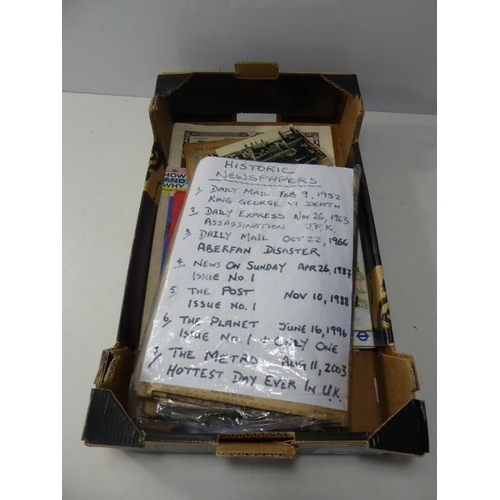 HOW AND WHY
HISTORIC
NEWSPAPERS
1/ DAILY MAIL FEB 9, 1952
KING GEORGE VI DEATH
2/ DAILY EXPRESS NOV 26, 1963
ASSASSINATION J.F.K.
3/ DAILY MAIL OCT 22, 1966
ABERFAN DISASTER
4/ NEWS ON SUNDAY APR 26, 1987
ISSUE NO. 1
5/ THE POST NOV 10, 1988
ISSUE NO. 1
6/ THE PLANET JUNE 16, 1996
ISSUE NO. 1 + ONLY ONE
7/ THE METRO AUG 11, 2003
HOTTEST DAY EVER IN U.K.